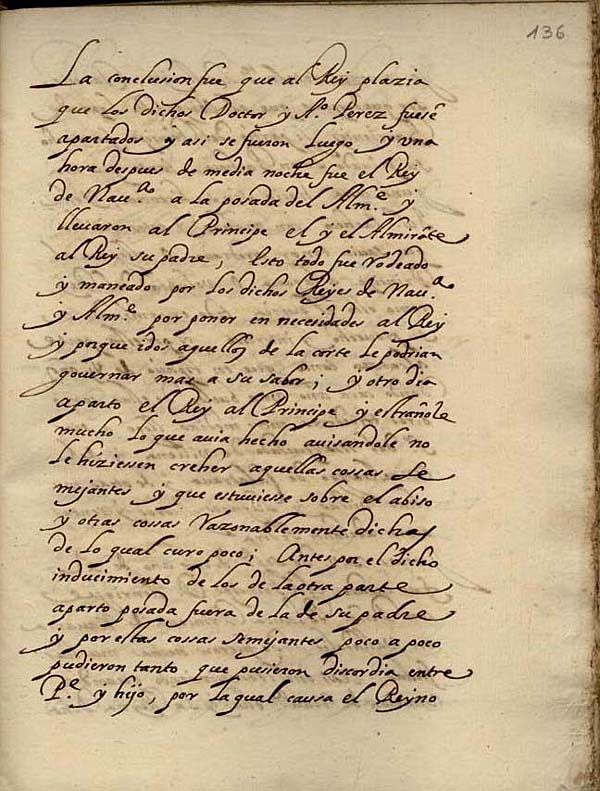 136
La conclusion fue que al Rey plazia
que los dichos Doctor y A.º Perez fuesē
apartados y asi se fueron luego y vna
hora despues de media noche fue el Rey
de Nau.ª a la posada del Alm.e y
lleuaron al Principe el y el Almirāte
al Rey su padre, Esto todo fue rodeado
y maneado por los dichos Reyes de Nau.ª
y Alm.e por poner en necesidades al Rey
y porque idos aquellos de la corte le podrian
governar mas a su sabor; y otro dia
aparto el Rey al Principe y estrañole
mucho lo que auia hecho auisandole no
le hiziessen creher aquellas cossas se
mejantes y que estuuiesse sobre el abiso
y otras cossas razonablemente dichas
de lo qual curo poco; Antes por el dicho
inducimiento de los de la otra parte
aparto posada fuera de la de su padre
y por estas cossas semejantes poco a poco
pudieron tanto que pusieron discordia entre
P.e y hijo, por la qual caussa el Reyno